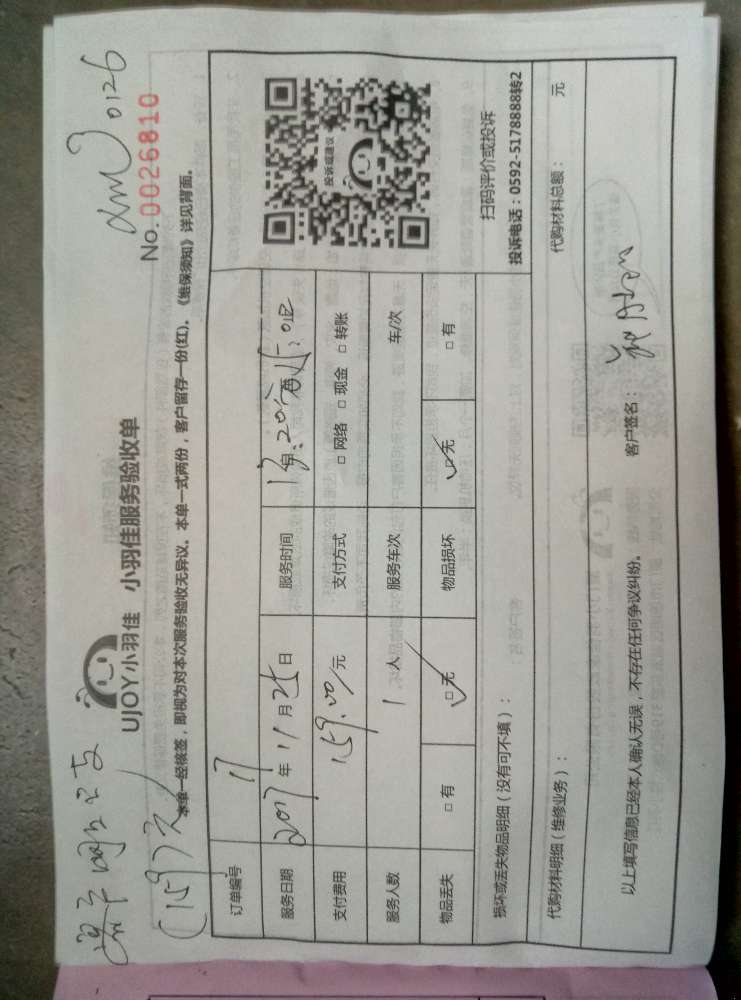 0126
No. 0026810
UJOY小羽佳 小羽佳服务验收单
本单一经核签，即视为对本次服务验收无异议。本单一式两份，客户留存一份(红)。《维保须知》详见背面。
(159元)
订单编号 17
服务日期 2017年11月25日 服务时间
支付费用 159.00元 支付方式 □网络 □现金 □转账
服务人数 1人 服务车次 车/次
物品丢失 □有 ☑无 物品损坏 ☑无 □有
投诉或建议
扫码评价或投诉
投诉电话：0592-5178888转2
损坏或丢失物品明细（没有可不填）：
代购材料明细（维修业务）： 代购材料总额： 元
以上填写信息已经本人确认无误，不存在任何争议纠纷。 客户签名：